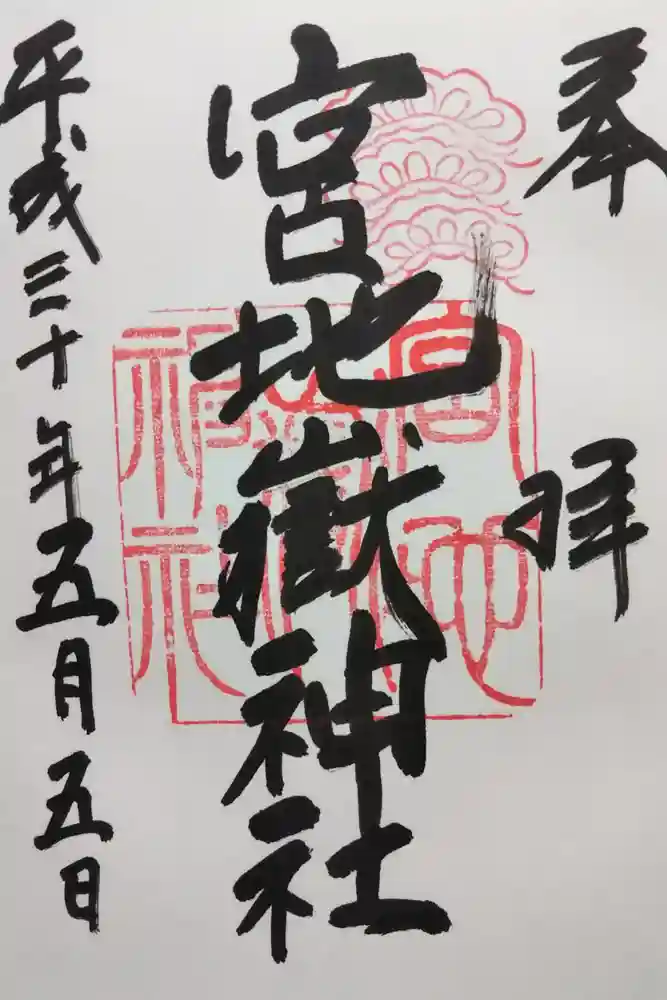 奉拝
宮地嶽神社
宮地嶽神社
平成三十年五月五日